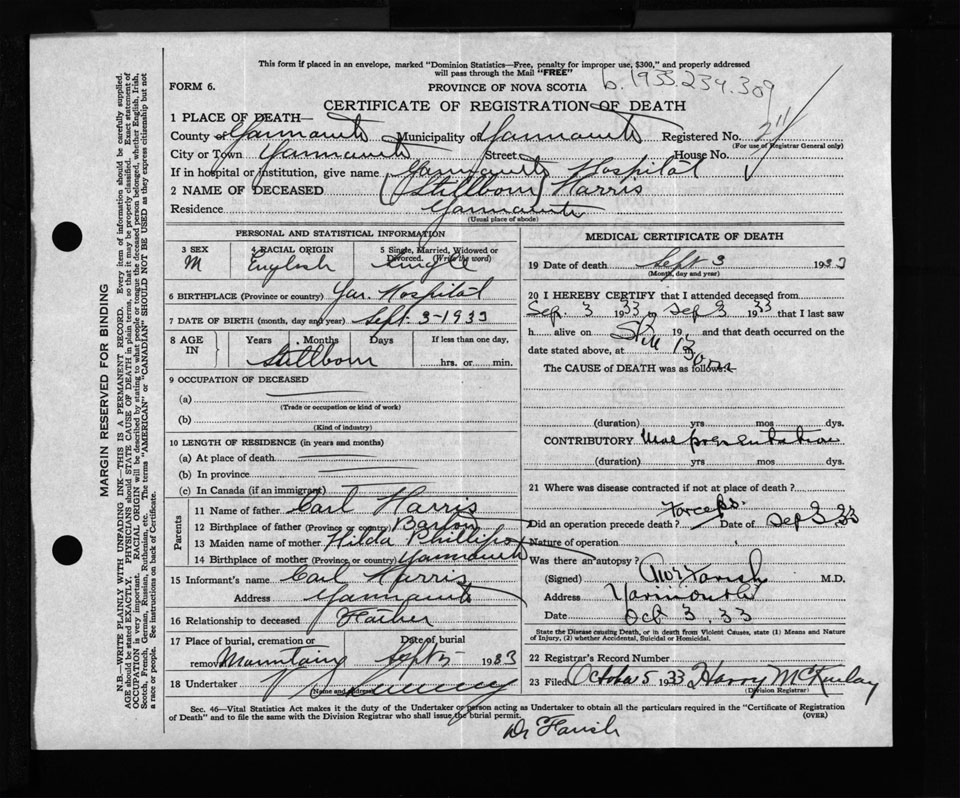 This form if placed in an envelope, marked "Dominion Statistics—Free, penalty for improper use, $300," and properly addressed
will pass through the Mail "FREE"
b. 1933.234.309
FORM 6.
PROVINCE OF NOVA SCOTIA
CERTIFICATE OF REGISTRATION OF DEATH
1 PLACE OF DEATH—
County of Yarmouth Municipality of Yarmouth Registered No.
(For use of Registrar General only)
City or Town Yarmouth Street House No.
If in hospital or institution, give name Yarmouth Hospital
2 NAME OF DECEASED (Stillborn) Harris
Residence Yarmouth
(Usual place of abode)
PERSONAL AND STATISTICAL INFORMATION
3 SEX 4 RACIAL ORIGIN 5 Single, Married, Widowed or Divorced. (Write the word)
M English Single
6 BIRTHPLACE (Province or country) Yar. Hospital
7 DATE OF BIRTH (month, day and year) Sept. 3-1933
8 AGE IN Years Months Days If less than one day,
Stillborn hrs. or min.
9 OCCUPATION OF DECEASED
(a)
(Trade or occupation or kind of work)
(b)
(Kind of industry)
10 LENGTH OF RESIDENCE (in years and months)
(a) At place of death
(b) In province
(c) In Canada (if an immigrant)
Parents
11 Name of father Carl Harris
12 Birthplace of father (Province or country) Barton
13 Maiden name of mother Hilda Phillips
14 Birthplace of mother (Province, or country) Yarmouth
15 Informant's name Carl Harris
Address Yarmouth
16 Relationship to deceased Father
17 Place of burial, cremation or removal Mountain Date of burial Sept 5 1933
18 Undertaker V S Sweeny
(Name and Address)
MEDICAL CERTIFICATE OF DEATH
19 Date of death Sept 3 1933
(Month, day and year)
20 I HEREBY CERTIFY that I attended deceased from
Sep. 3 1933 to Sep 3 1933 that I last saw
h alive on 19 , and that death occurred on
Still Born
date stated above, at
The CAUSE of DEATH was as follows:—
(duration) yrs mos dys.
CONTRIBUTORY Malpresentation
(duration) yrs mos dys.
21 Where was disease contracted if not at place of death ?
Did an operation precede death? Forceps. Date of Sep 3 33
Nature of operation
Was there an autopsy?
(Signed) Farish M.D.
Address Yarmouth
Date Oct 3, 33
State the Disease causing Death, or in death from Violent Causes, state (1) Means and Nature of Injury, (2) whether Accidental, Suicidal or Homicidal.
22 Registrar's Record Number
23 Filed October 5 1933 Harry McKinlay
(Division Registrar)
Sec. 46—Vital Statistics Act makes it the duty of the Undertaker or person acting as Undertaker to obtain all the particulars required in the "Certificate of Registration
of Death" and to file the same with the Division Registrar who shall issue the burial permit. (OVER)
Dr Farish
MARGIN RESERVED FOR BINDING
N.B.—WRITE PLAINLY WITH UNFADING INK—THIS IS A PERMANENT RECORD. Every item of information should be carefully supplied.
AGE should be stated EXACTLY. PHYSICIANS should STATE CAUSE OF DEATH in plain terms, so that it may be properly classified. Exact statement of
OCCUPATION is very important. RACIAL ORIGIN will be described by stating to what people or tongue the deceased person belonged, whether English, Irish,
Scotch, French, German, Russian, Ruthenian, etc. The terms "AMERICAN" or "CANADIAN" SHOULD NOT BE USED as they express citizenship but not
a race or people. See instructions on back of Certificate.